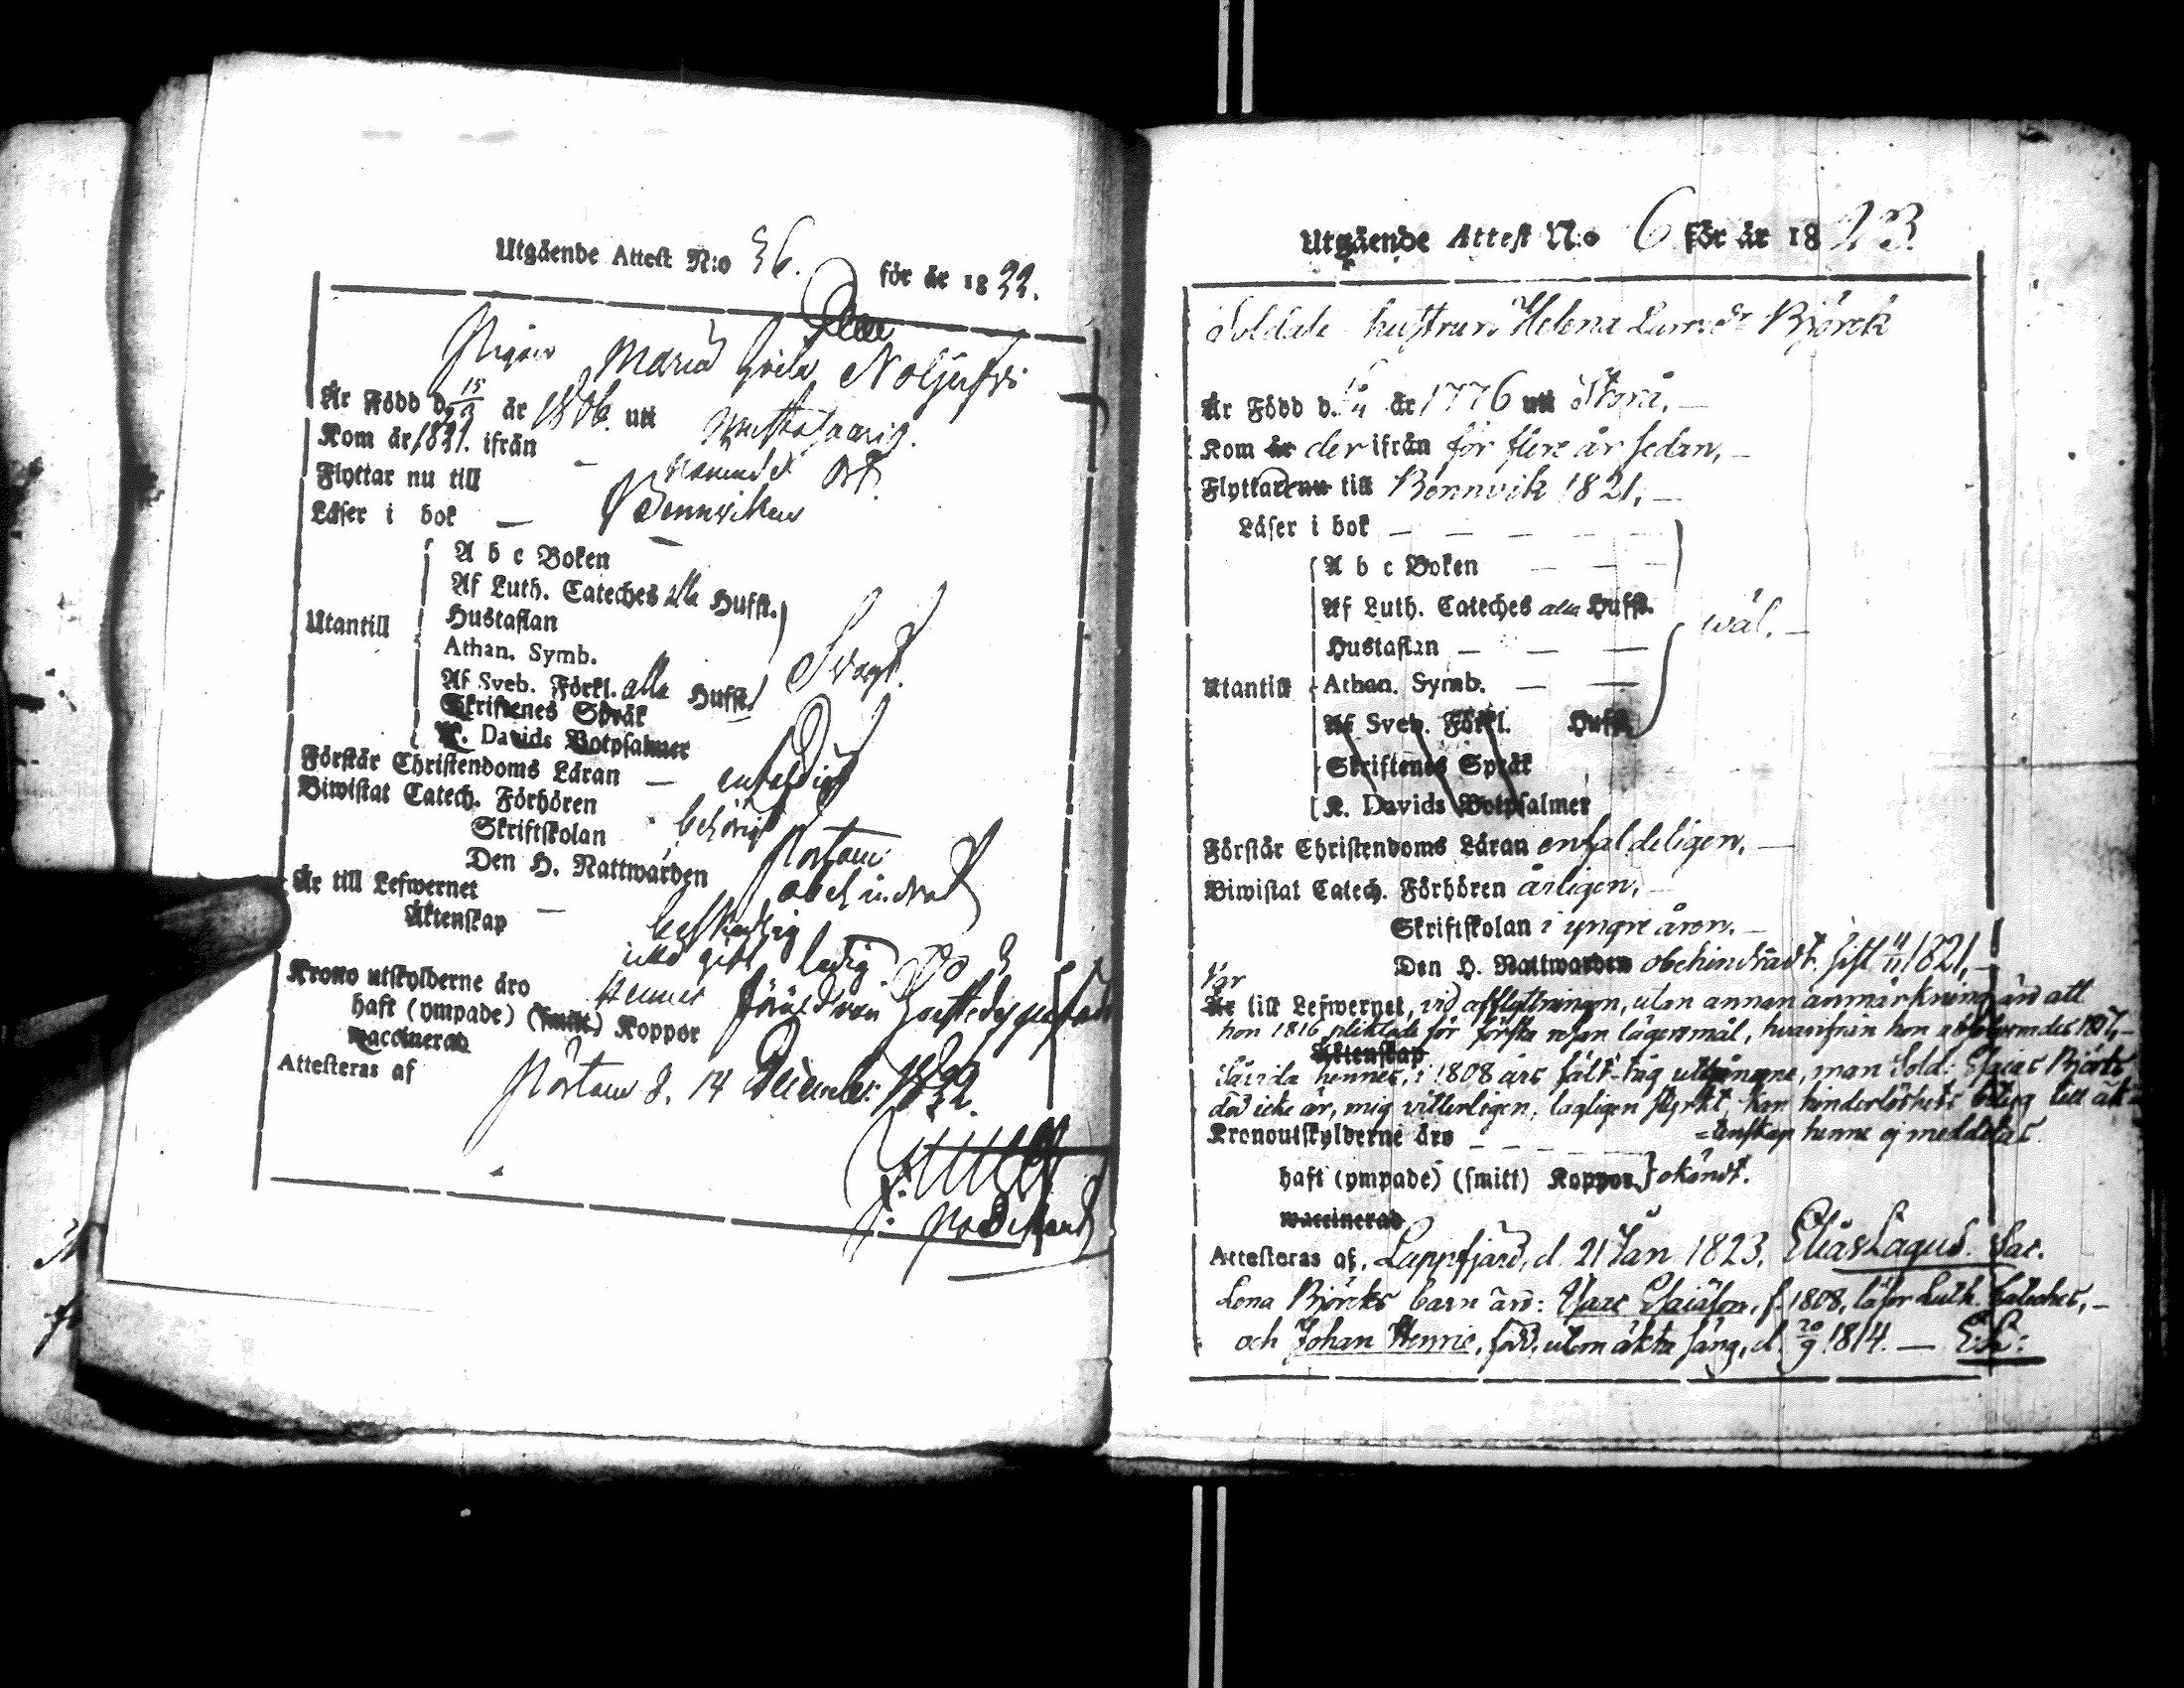 Utgående Attest N:o 36. för år 1822.
Pigan Maria
Är Född d. 15/3 år 1806. uti Mustasaari.
Kom år 1821. ifrån nämnde ort.
Flyttar nu till Bennviken
Läser i bok —
Utantill
A b c Boken
Af Luth. Cateches alla Hufst.
Hustaflan
Athan. Symb.
Af Sveb. Förkl. alla Hufst.
Svagt.
Skriftenes Språk
K. Davids Botpsalmer
Förstår Christendoms Läran — enfaldigt
Biwistat Catech. Förhören behörigt
Skriftskolan Pörtom
Den H. Nattwarden obehindrat
Är till Lefwernet — beskedlig
Äktenskap icke gift ledig
Krono utskylderne äro
haft (ympade) (smitt.) Koppor
vaccinerad
Attesteras af Pörtom d. 14 December 1822.
Utgående Attest N:o 6 för år 1823.
Soldats hustrun Helena Björck
Är Född d. år 1776 uti Storå. —
Kom år der ifrån för flere år sedan, —
Flyttade nu till Bennvik 1821, —
Läser i bok — — — — —
Utantill
A b c Boken — — —
Af Luth. Cateches alla Hufst.
Hustaflan — — —
wäl. —
Athan. Symb. — —
Af Sveb. Förkl. Hufst.
Skriftenes Språk
K. Davids Botpsalmer
Förstår Christendoms Läran enfaldeligen. —
Biwistat Catech. Förhören årligen, —
Skriftskolan i yngre åren. —
Den H. Nattwarden obehindradt. sist 4/11 1821, —
Var
Är till Lefwernet, vid afflyttningen, utan annan anmärkning än att
hon 1816 pliktade för första resan lägersmål, hvarifrån hon
Äktenskap
Såvida hennes, i 1808 års fält-tåg utgångne, man Sold. Esaias Björks
död icke är, mig vitterligen, lagligen styrkt, kan hinderlöshets betyg till äk-
Kronoutskylderne äro — — — =tenskap henne ej meddelas.
haft (ympade) (smitt) Koppor } okändt.
waccinerad
Attesteras af, Lappfjärd, d. 21 Jan 1823. Elias Lagus. Sac.
Lena Björcks barn äro: Isaac Esaiason, f. 1808, läser Luth. Cateches, —
och Johan Henric, född, utom äkta säng, d. 20/9 1814. — E:L: